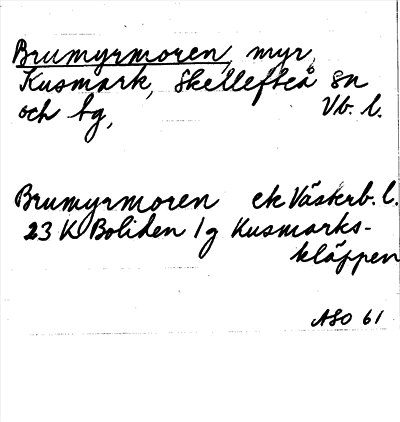 Brumyrmoren, myr,
Kusmark, Skellefteå sn
och tg, Vb. l.
Brumyrmoren ek Västerb. l.
23 K Boliden 1 g Kusmarks-
kläppen
ASO 61